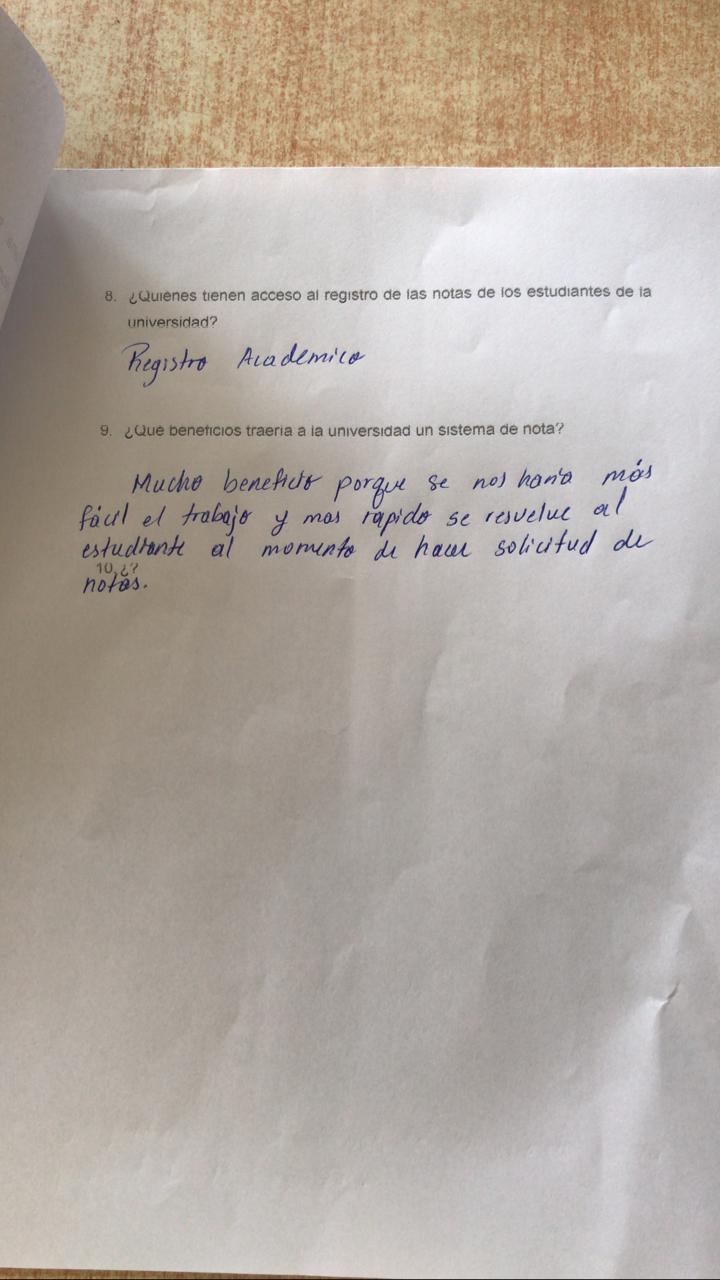 8. ¿Quiénes tienen acceso al registro de las notas de los estudiantes de la
universidad?
Registro Academico
9. ¿Qué beneficios traería a la universidad un sistema de nota?
Mucho beneficio porque se nos haría más
fácil el trabajo y mas rapido se resuelve al
estudiante al momento de hacer solicitud de
10.¿?
notas.